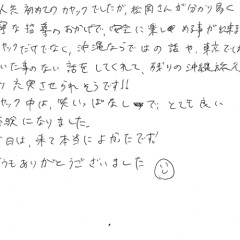 人共 初めての カヤックでしたが、松岡さんが分かり易く
寧な指導のおかげで、安全に楽しむ事が出来
ヤックだけでなく、沖縄ならではの話や、東京でしか
いた事のない話をしてくれて、残りの沖縄旅を
り充実させられそうです!!
ヤック中は、笑いっぱなしで、とても良い
験になりました。
日は、来て本当によかったです!
うもありがとうございました